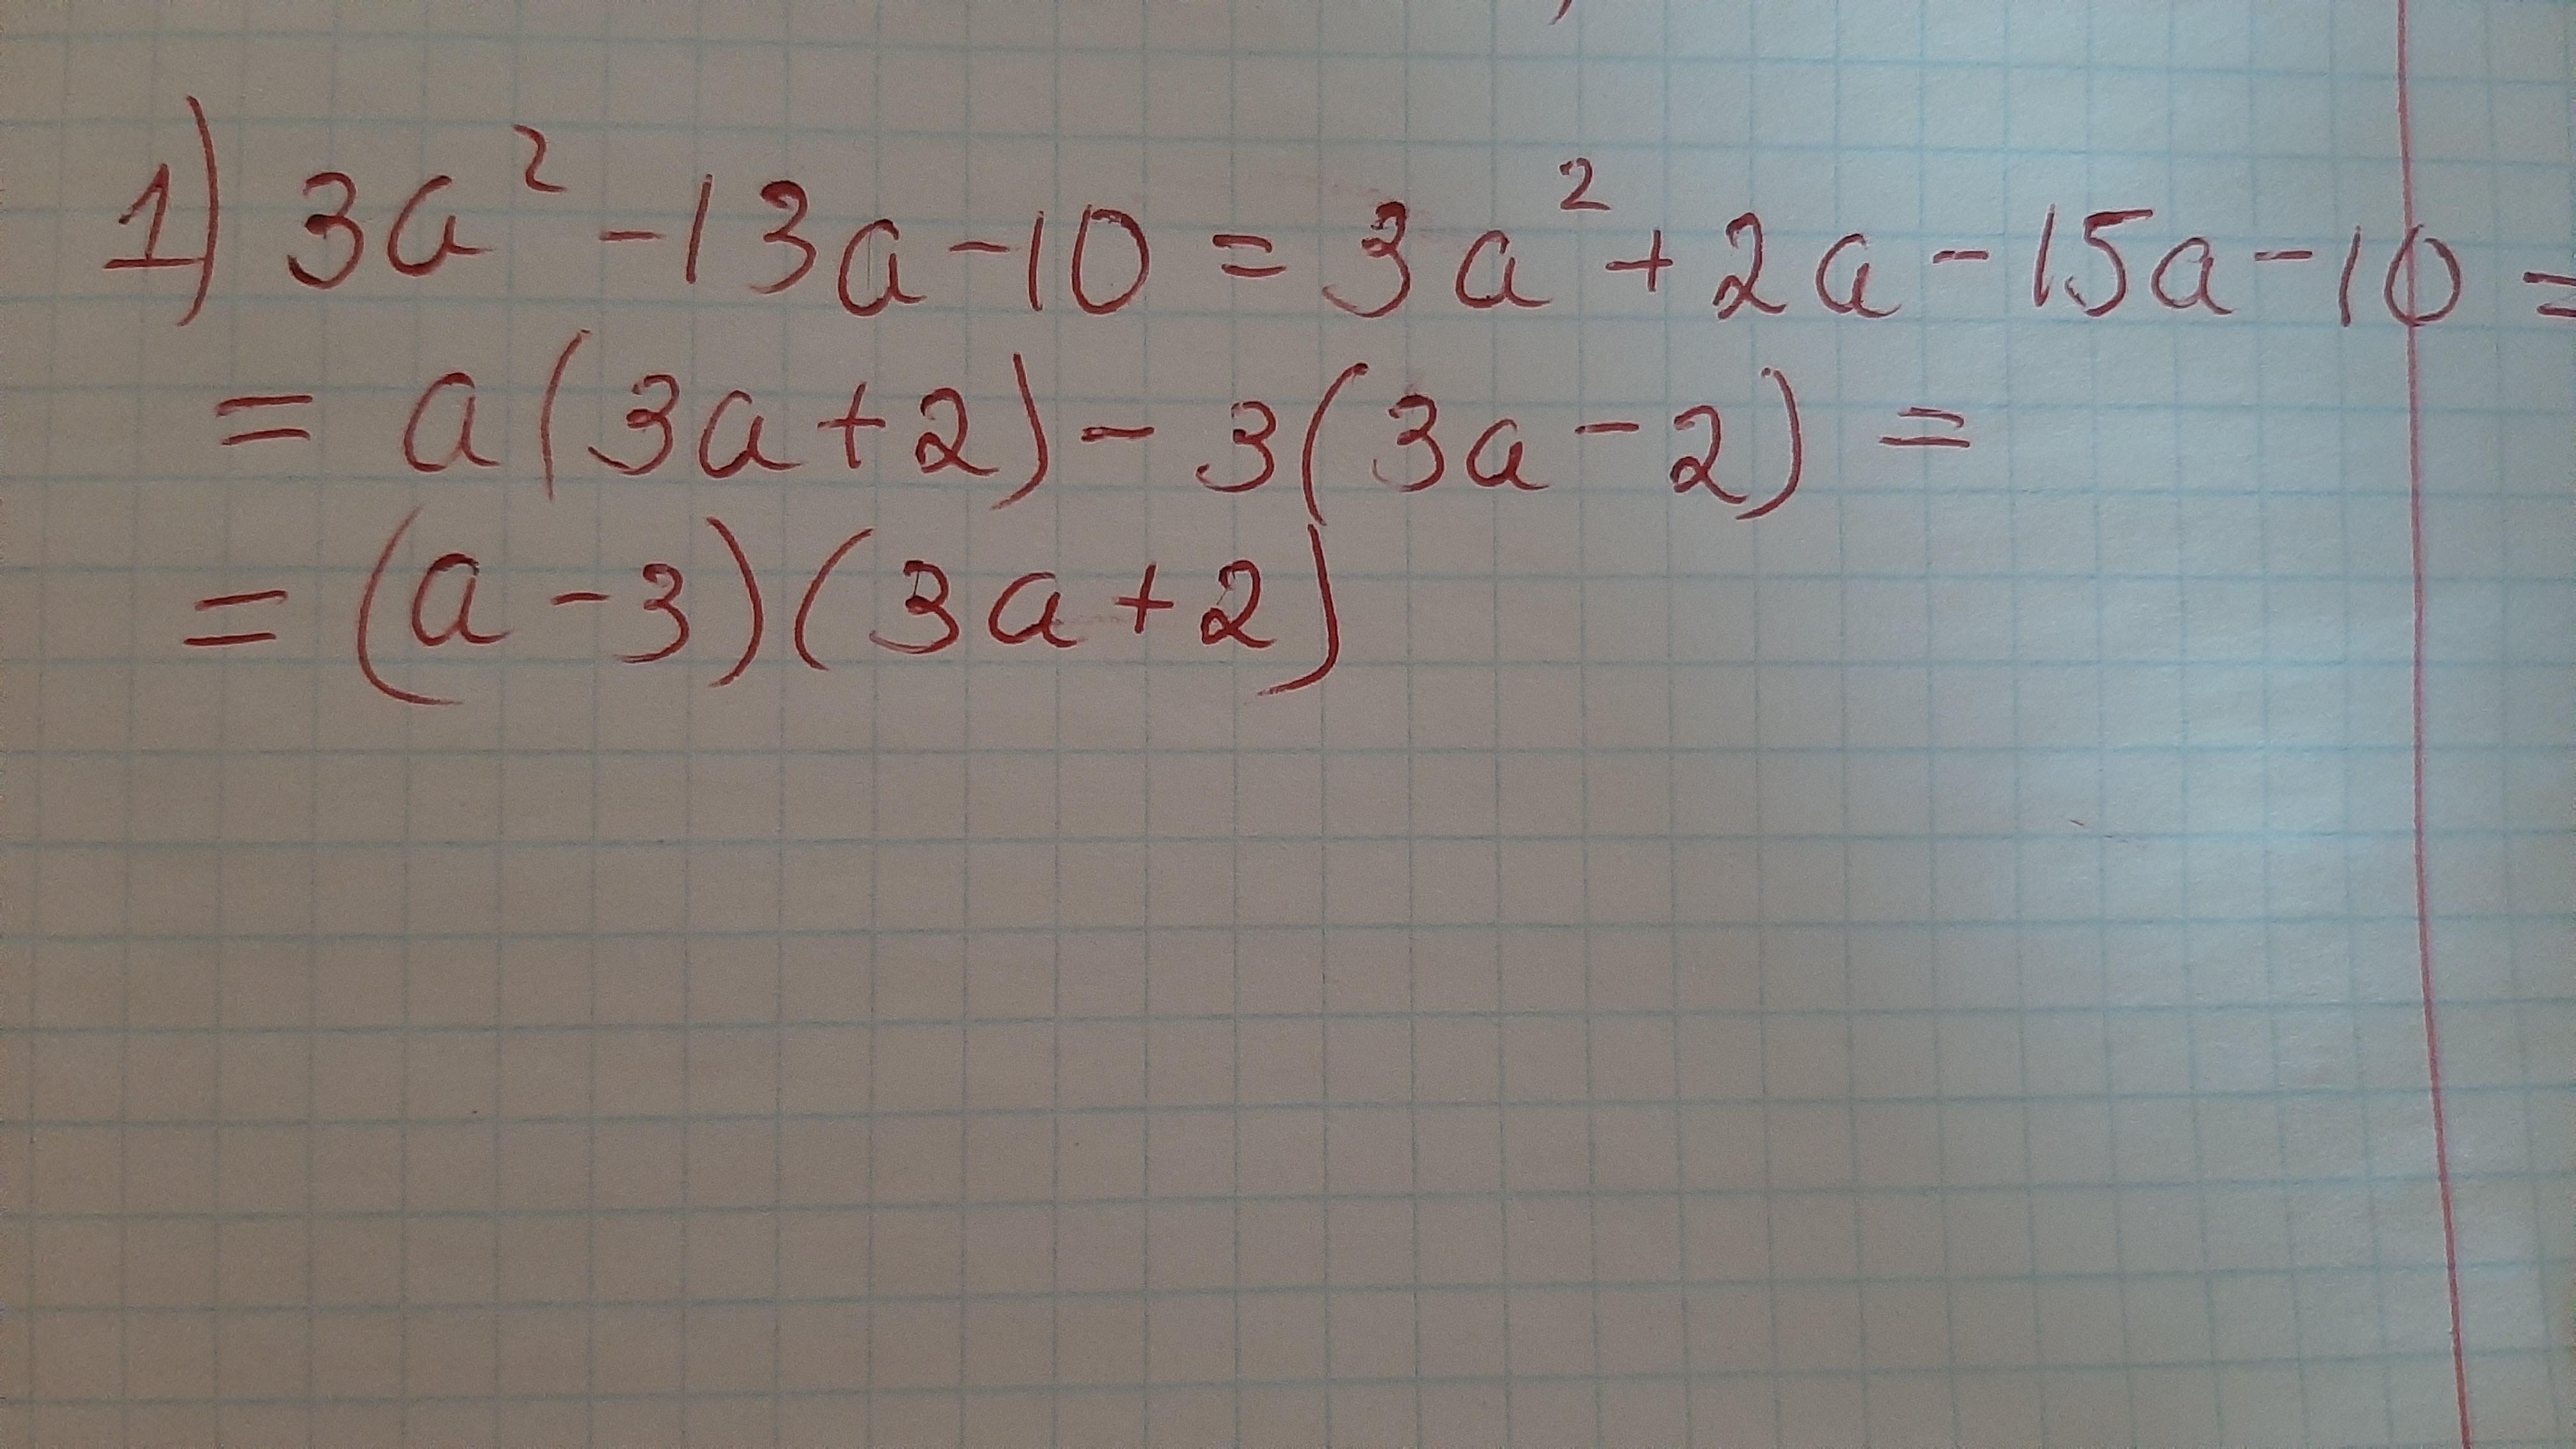 1) 3a² - 13a - 10 = 3a² + 2a - 15a - 10 =
= a(3a + 2) - 3(3a - 2) =
= (a - 3)(3a + 2)